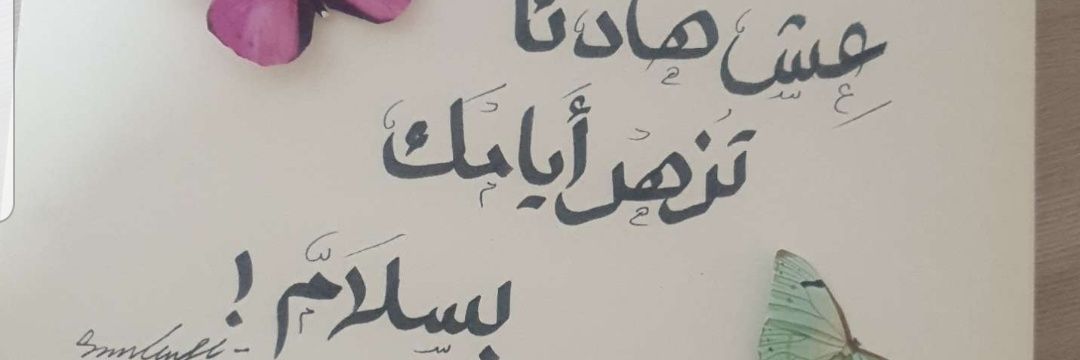 عِش هادئا
تُزهْر أَيامَك
بِسلَامٍّ !